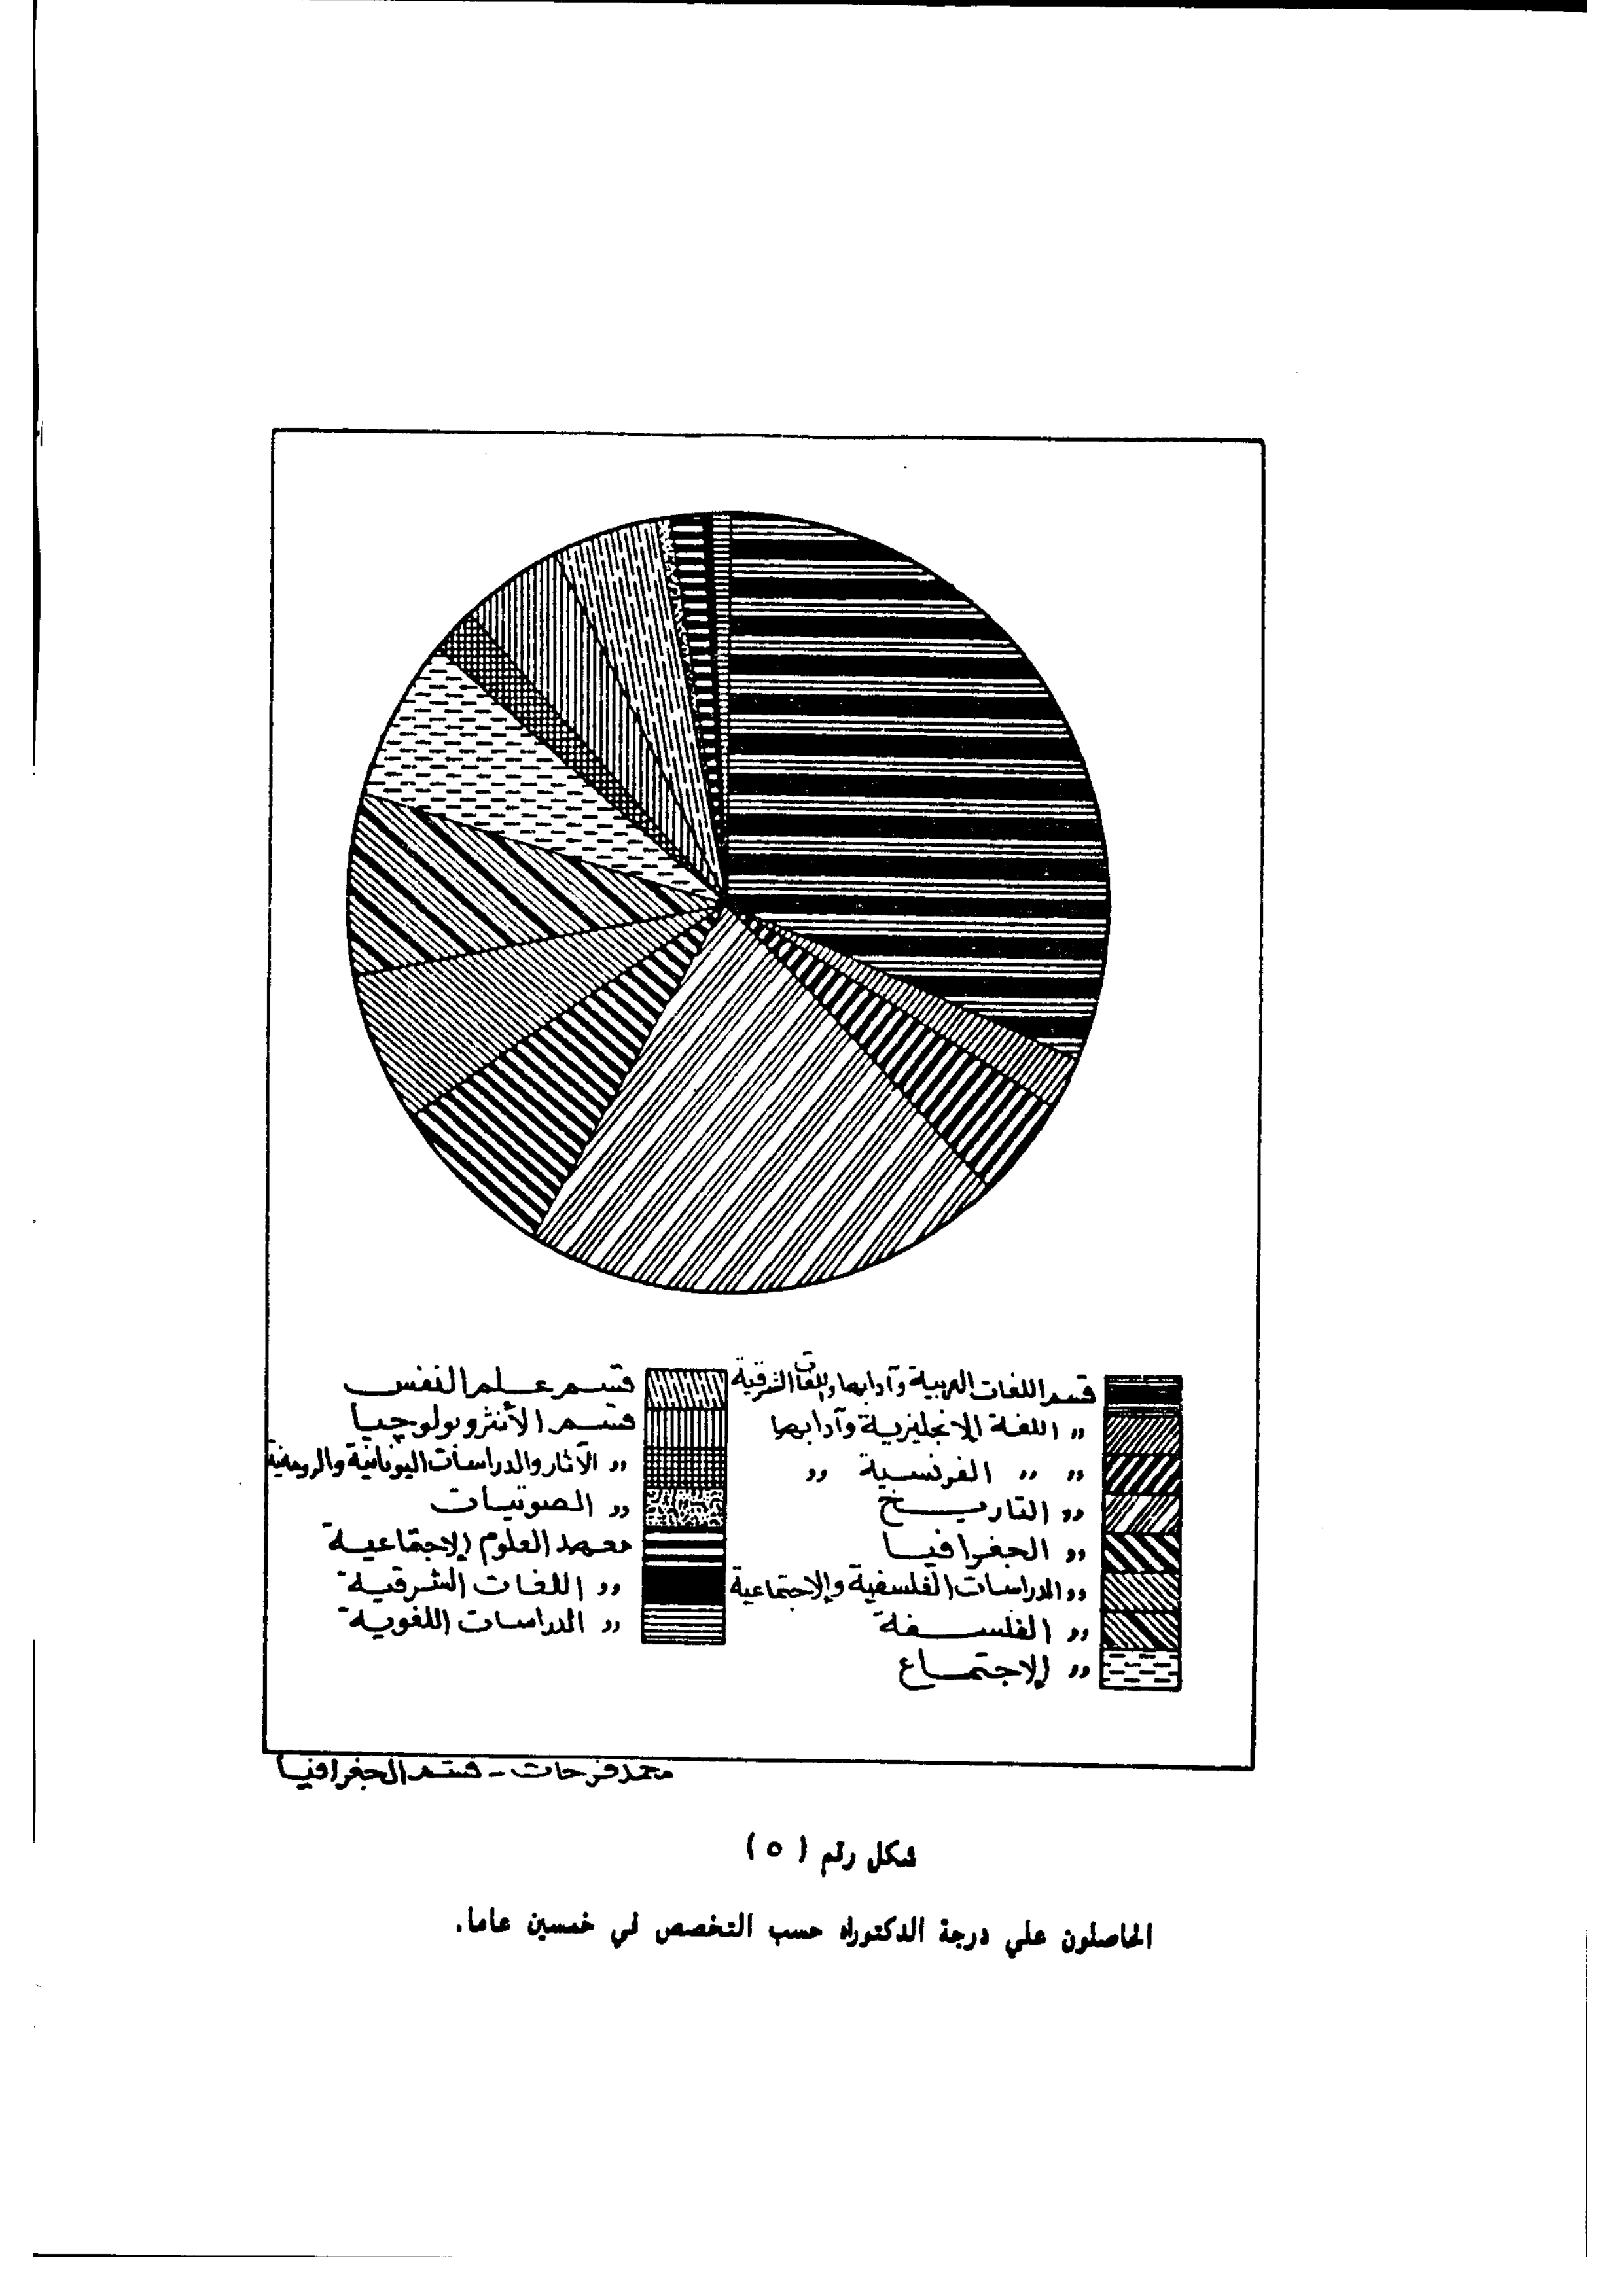 قسم اللغات العربية وآدابها واللغات الشرقية
〃 اللغة الإنجليزية وآدابها
〃 〃 الفرنسية 〃
〃 التاريخ
〃 الجغرافيا
〃 الدراسات الفلسفية والإجتماعية
〃 الفلسفة
〃 الإجتماع
قسم علم النفس
قسم الأنثروبولوچيا
〃 الآثار والدراسات اليونانية والرومانية
〃 الصوتيات
معهد العلوم الإجتماعية
〃 اللغات الشرقية
〃 الدراسات اللغوية
محمد فرحات - قسم الجغرافيا
شكل رقم ( ٥ )
الحاصلون علي درجة الدكتوراه حسب التخصص في خمسين عاما.